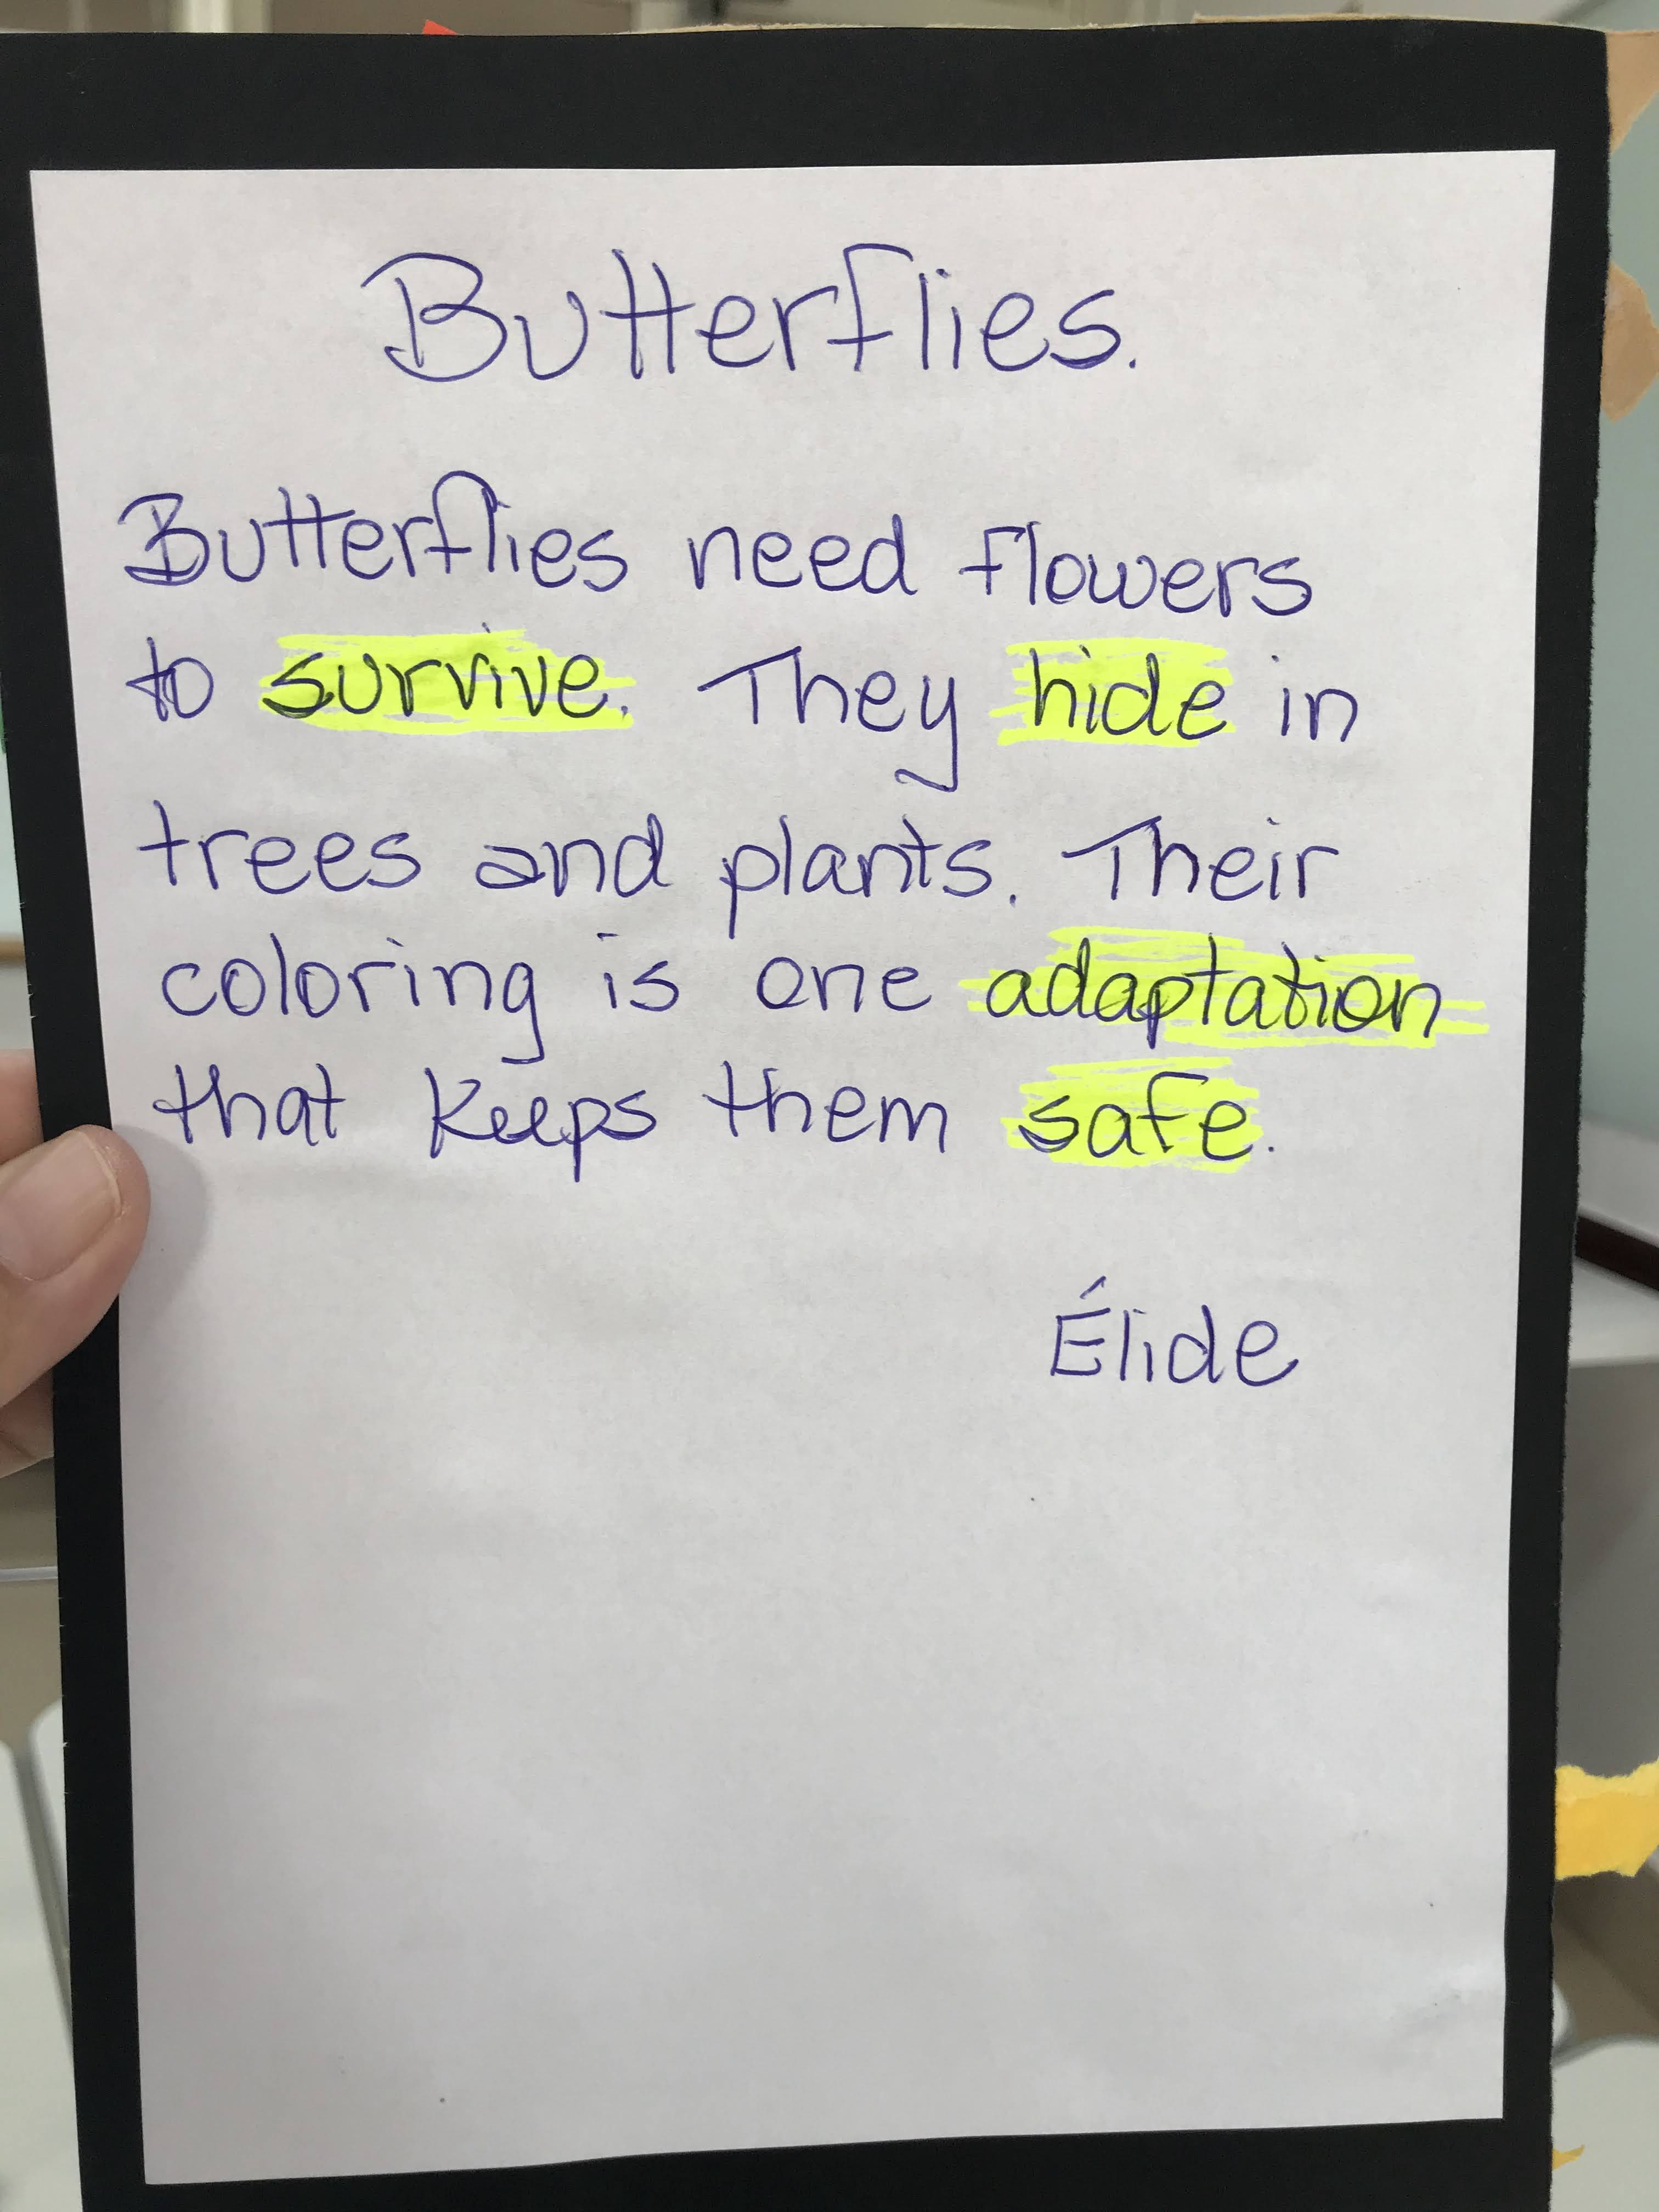 Butterflies.
Butterflies need flowers
to survive. They hide in
trees and plants. Their
coloring is one adaptation
that keeps them safe.
Élide